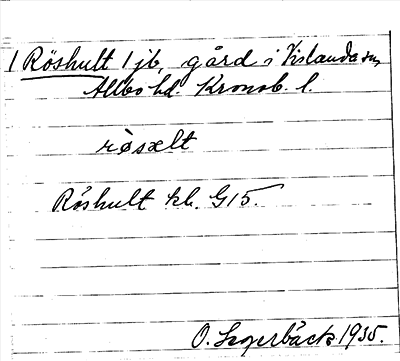 1 Röshult 1 jb, gård i Vislanda sn,
Allbo hd Kronob. l.
rȯsælt
Röshult kk. G15.
O. Lagerbäck 1935.